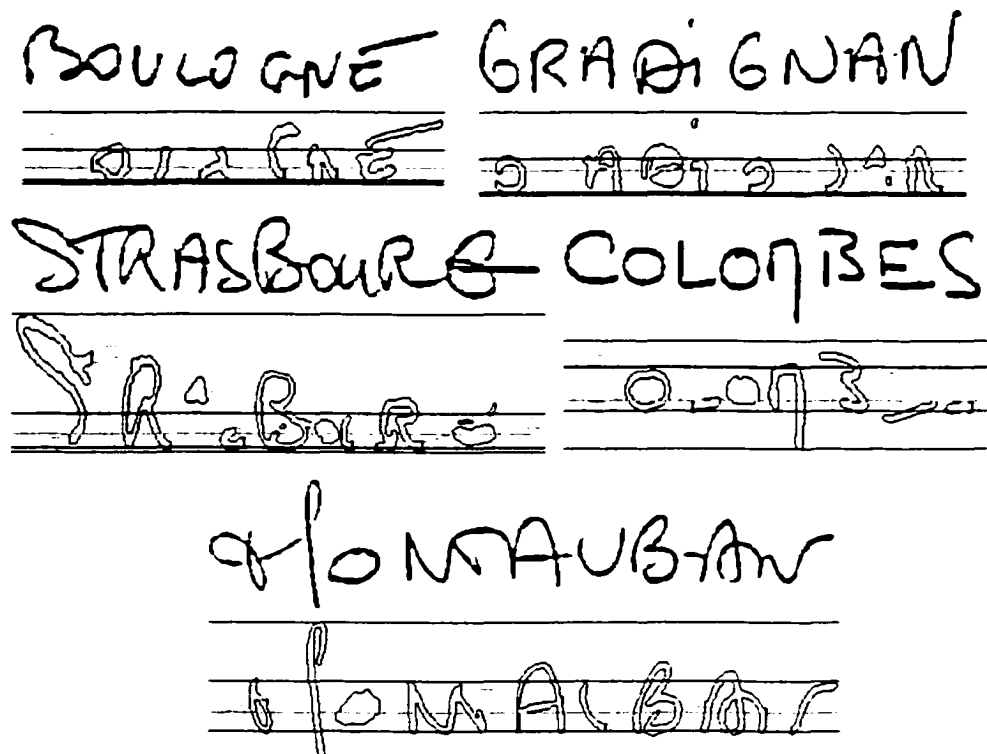 BOULOGNE GRADiGNAN
STRASBOURG COLOMBES
MONTAUBAN